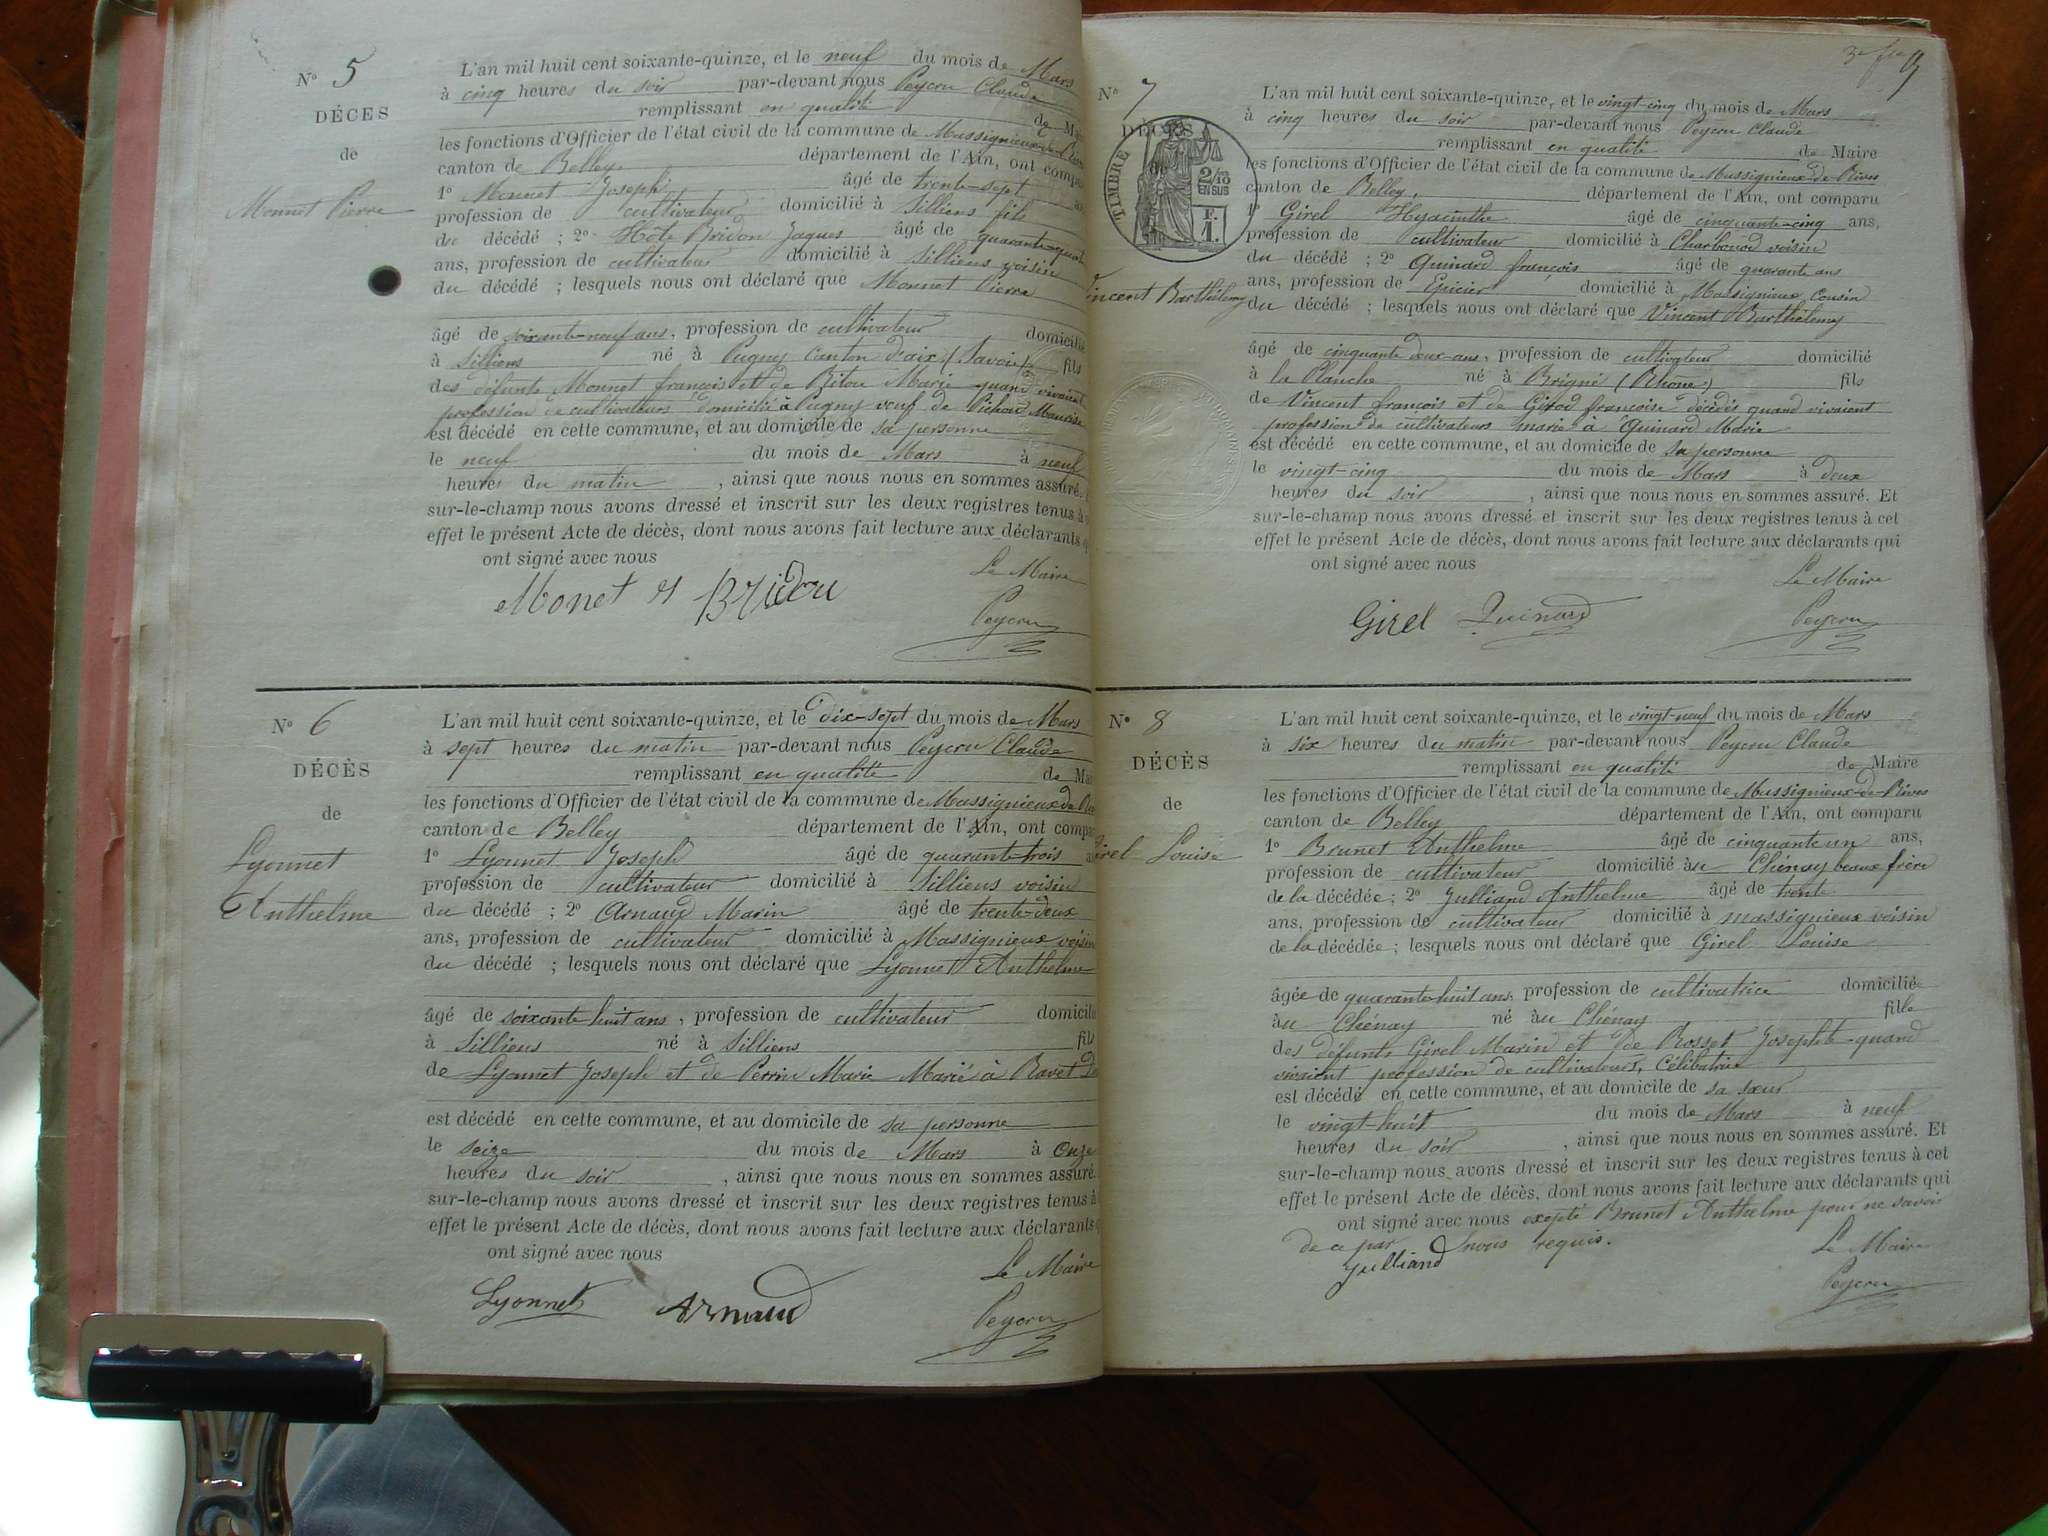 N° 5
DÉCES
de
Monnet Pierre
L'an mil huit cent soixante-quinze, et le neuf du mois de Mars
à cinq heures du soir par-devant nous Peycru Claude
remplissant en qualité de Mai
les fonctions d'Officier de l'état civil de la commune de Massignieux-de-Rives
canton de Belley. département de l'Ain, ont compa
1° Monnet Joseph âgé de trente-sept
profession de cultivateur domicilié à Silliens fils
du décédé ; 2° Hôte Bridon Jaques âgé de quarante-quat
ans, profession de cultivateur domicilié à Silliens voisin
du décédé ; lesquels nous ont déclaré que Monnet Pierre
âgé de soixante-neuf ans, profession de cultivateur domicilié
à Silliens né à Pugny Canton d'aix (Savoie) fils
des défunts Monnet françois et de Bitou Marie quand vivaient
profession de cultivateurs domicilié à Pugny veuf de Pichon Maurise
est décédé en cette commune, et au domicile de sa personne
le neuf du mois de Mars à neuf
heures du matin, ainsi que nous nous en sommes assuré.
sur-le-champ nous avons dressé et inscrit sur les deux registres tenus à
effet le présent Acte de décès, dont nous avons fait lecture aux déclarants q
ont signé avec nous
Le Maire
Monet Bridon
Peycru
N° 6
DÉCÈS
de
Lyonnet
Anthelme
L'an mil huit cent soixante-quinze, et le dix-sept du mois de Mars
à sept heures du matin par-devant nous Peycru Claude
remplissant en qualité de Mai
les fonctions d'Officier de l'état civil de la commune de Massignieux de Riv
canton de Belley département de l'Ain, ont compar
1° Lyonnet Joseph âgé de quarante-trois a
profession de cultivateur domicilié à Silliens voisin
du décédé ; 2° Arnaud Marin âgé de trente-deux
ans, profession de cultivateur domicilié à Massignieux voisin
du décédé ; lesquels nous ont déclaré que Lyonnet Anthelme
âgé de soixante huit ans, profession de cultivateur domicilié
à Silliens né à Silliens fils
de Lyonnet Joseph et de Perrin Marie Marié à Ravet
est décédé en cette commune, et au domicile de sa personne
le seize du mois de Mars à Onze
heures du soir, ainsi que nous nous en sommes assuré.
sur-le-champ nous avons dressé et inscrit sur les deux registres tenus à
effet le présent Acte de décès, dont nous avons fait lecture aux déclarants q
ont signé avec nous
Le Maire
Lyonnet Arnaud
Peycru
3e fle
N° 7
DÉCÈS
de
TIMBRE
2/10
EN SUS
F.
1.
Vincent Barthélemy
L'an mil huit cent soixante-quinze, et le vingt-cinq du mois de Mars
à cinq heures du soir par-devant nous Peycru Claude
remplissant en qualité de Maire
les fonctions d'Officier de l'état civil de la commune de Massignieux-de-Rives
canton de Belley, département de l'Ain, ont comparu
1° Girel Hyacinthe âgé de cinquante-cinq ans,
profession de cultivateur domicilié à Charbonod voisin
du décédé ; 2° Quinard françois âgé de quarante ans
ans, profession de Epicier domicilié à Massignieux Cousin
du décédé ; lesquels nous ont déclaré que Vincent Barthélemy
âgé de cinquante deux ans, profession de cultivateur domicilié
à la Planche né à Brigné (Rhône) fils
de Vincent françois et de Girod françoise décédés quand vivaient
profession de cultivateurs marié à Quinard Marie
est décédé en cette commune, et au domicile de sa personne
le vingt-cinq du mois de Mars à deux
heures du soir, ainsi que nous nous en sommes assuré. Et
sur-le-champ nous avons dressé et inscrit sur les deux registres tenus à cet
effet le présent Acte de décès, dont nous avons fait lecture aux déclarants qui
ont signé avec nous
Le Maire
Girel Quinard
Peycru
N° 8
DÉCÈS
de
Girel Louise
L'an mil huit cent soixante-quinze, et le vingt-neuf du mois de Mars
à six heures du matin par-devant nous Peycru Claude
remplissant en qualité de Maire
les fonctions d'Officier de l'état civil de la commune de Massignieux-de-Rives
canton de Belley département de l'Ain, ont comparu
1° Brunet Anthelme âgé de cinquante un ans,
profession de cultivateur domicilié au Chénay beaux frère
de la décédée ; 2° Julliand Anthelme âgé de trente
ans, profession de cultivateur domicilié à massignieux voisin
de la décédée ; lesquels nous ont déclaré que Girel Louise
âgée de quarante huit ans, profession de cultivatrice domiciliée
au Chénay né au Chénay fille
des défunts Girel Marin et de Rosset Josephte quand
vivaient profession de cultivateurs, Célibatrice
est décédé en cette commune, et au domicile de sa sœur
le vingt-huit du mois de Mars à neuf
heures du soir, ainsi que nous nous en sommes assuré. Et
sur-le-champ nous avons dressé et inscrit sur les deux registres tenus à cet
effet le présent Acte de décès, dont nous avons fait lecture aux déclarants qui
ont signé avec nous excepté Brunet Anthelme pour ne savoir
de ce par nous requis.
Le Maire
Julliand
Peycru